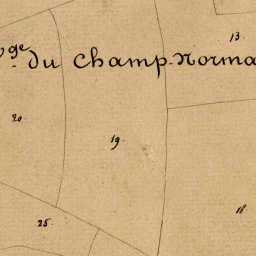 13.
ge du Champ-Norma
20.
19.
18
25.